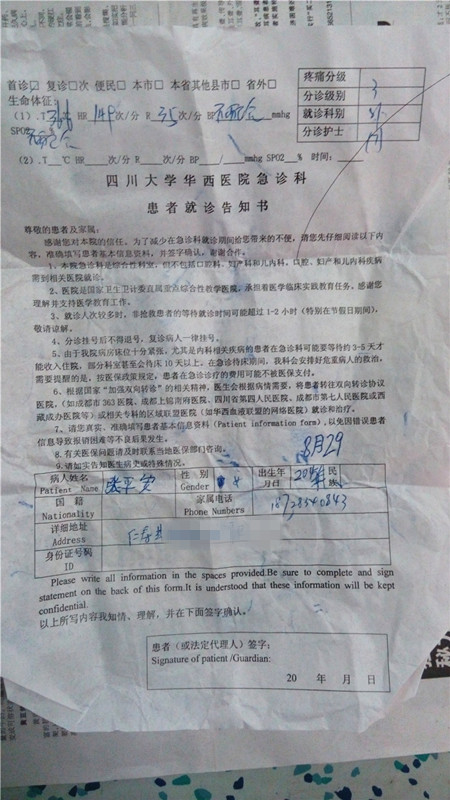 首诊□ 复诊□次 便民□ 本市□ 本省其他县市□ 省外□
疼痛分级
分诊级别 3
就诊科别 外
分诊护士
生命体征:
(1).T HR 149 次/分 R 35 次/分 BP 不配合 mmhg
SPO2 不配合
(2).T__℃ HR__次/分 R__次/分 BP__/__mmhg SPO2__% 时间:
四川大学华西医院急诊科
患者就诊告知书
尊敬的患者及家属:
感谢您对本院的信任。为了减少在急诊科就诊期间给您带来的不便,请您先仔细阅读以下内
容,准确填写患者基本信息资料,并签字确认,谢谢合作。
1、本院急诊科是综合性科室,但不包括口腔科、妇产科和儿内科,口腔、妇产和儿内科疾病
需到相关医院就诊。
2、医院是国家卫生计委直属重点综合性教学医院,承担着医学临床实践教育任务。感谢您
理解并支持医学教育工作。
3、就诊人次较多时,非抢救患者的等待就诊时间可能超过1-2小时(特别在节假日期间),
敬请谅解。
4、分诊挂号后不得退号,复诊病人一律挂号。
5、由于我院病房床位十分紧张,尤其是内科相关疾病的患者在急诊科可能要等待约3-5天才
能收入住院,部分科室甚至会待床10天以上。在急诊待床期间,我科会安排好危重病人的救治,
需要提醒的是,按医保政策规定,患者在急诊诊疗的费用可能不被医保支付。
6、根据国家"加强双向转诊"的相关精神,医生会根据病情需要,将患者转往双向转诊协议
医院,(如成都市363医院、成都上锦南府医院、四川省第四人民医院、成都市第七人民医院或西
藏成办医院等)或相关专科的区域联盟医院(如华西血液联盟的网络医院)就诊和治疗。
7、请您真实、准确填写患者基本信息资料(Patient information form),以免因错误患者
信息导致报销困难等不良后果发生。
8、有关医保问题请及时联系当地医保部门咨询。
9、请如实告知医生病史或特殊情况。
8月29
病人姓名 Patient Name 张平安 性 别 Gender 出生年月日 民族
国 籍 Nationality 家属电话 Phone Numbers
详细地址 Address 仁寿县
身份证号码 ID
Please write all information in the spaces provided.Be sure to complete and sign
statement on the back of this form.It is understood that these information will be kept
confidential.
以上所写内容我知情、理解,并在下面签字确认。
患者(或法定代理人)签字:
Signature of patient /Guardian:
20 年 月 日